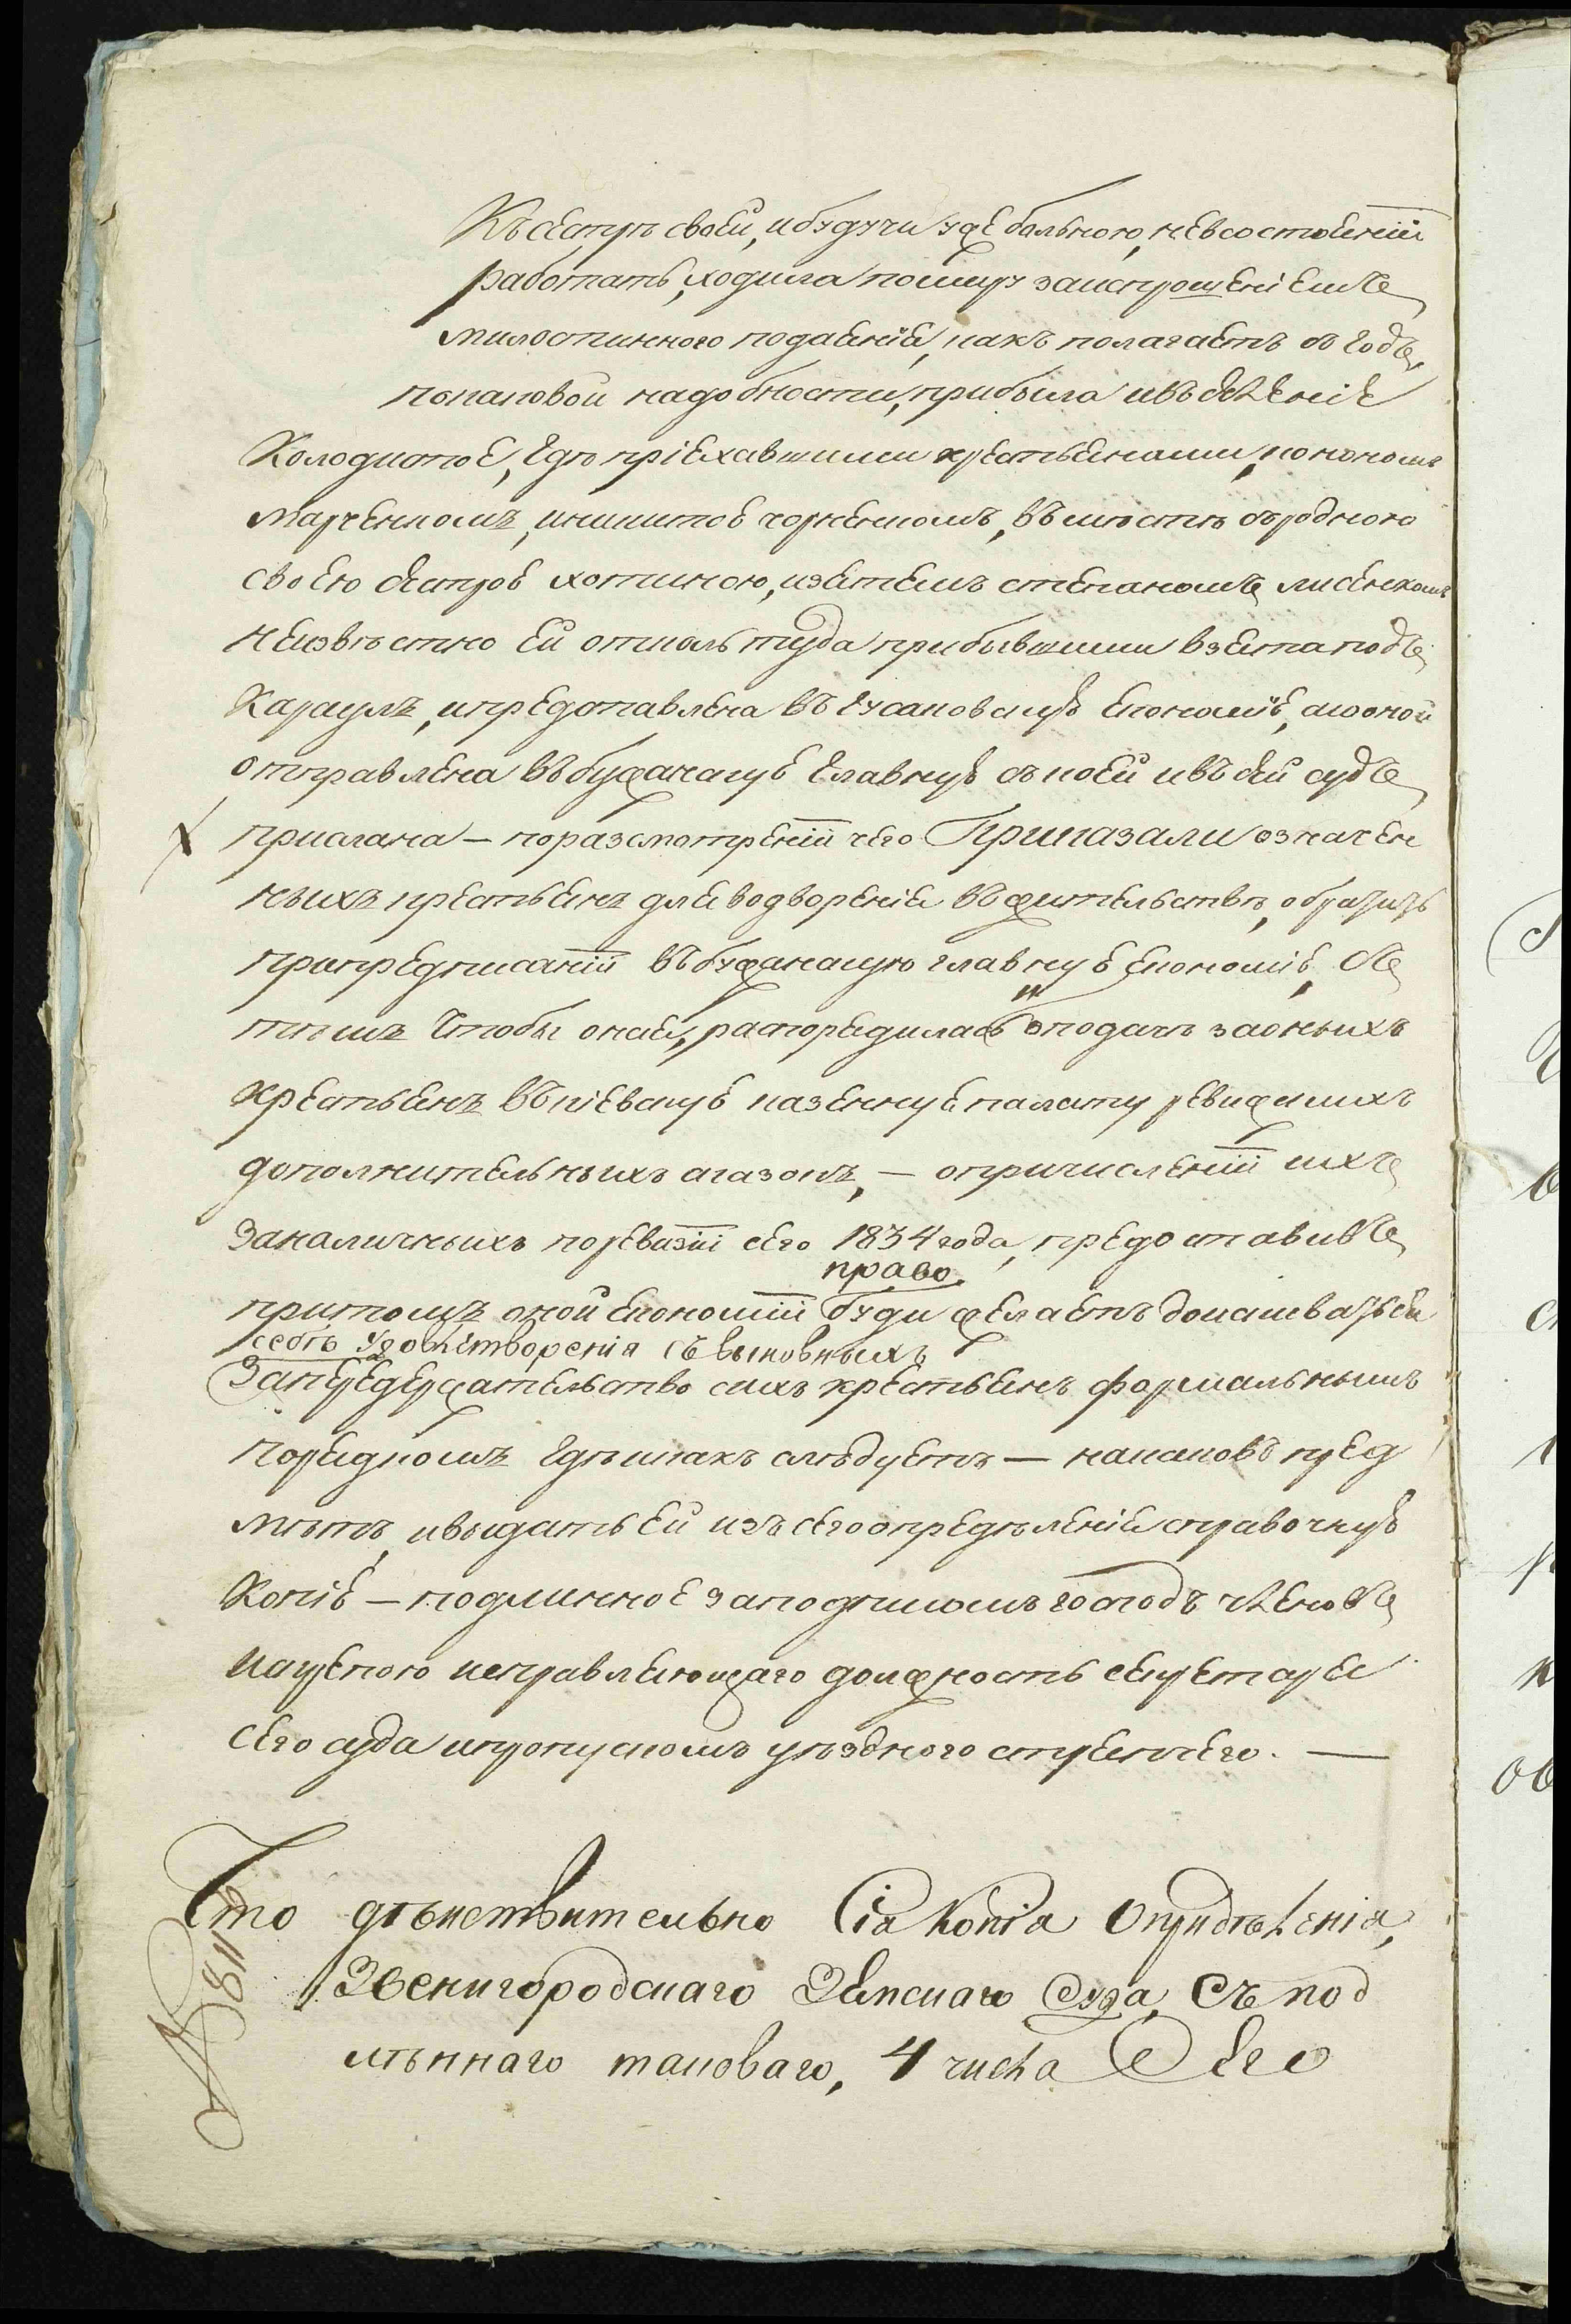 Къ сестрѣ своей, и будучи уже больною, не в состоянїи
работать, ходила по миру за испрошенїемъ
милостиннаго подаянїя, какъ полагаетъ въ годъ,
по каковой надобности, прибыла и въ селенїе
Колодистое, где прїехавшими крестьянами, кононом
марченкомъ, и никитою корненкомъ, въ мѣстѣ съ родною
своею сестрою хотиною, и зятемъ степаномъ лисенком
неизвѣстно ей отколь туда прибывшими взята подъ
Караулъ, и предоставлена въ гусаковскую економїю, а со оной
отправлена въ бужанскую главную а с ней и въ сей судъ
прислана — по разсмотренїи чего Приказали означен
ныхъ крестьянъ для водворенїя въ жительствѣ, обратить
при предписанїи въ бужанскую главную економїю, съ
тѣмъ чтобы оная, распорядилась о подачѣ за оныхъ
крестьянъ въ кїевскую казенную палату ревижских
дополнительныхъ сказокъ, — о причисленїи ихъ
за наличныхъ по ревизїи сего 1834 года, предоставивъ
право
притомъ оной економїи буди желаетъ доискиваться
себѣ удовлетворенїя съ выновныхъ
За передержательство сихъ крестьянъ формальнымъ
порядкомъ где и какъ слѣдуетъ — на каковъ пред
мѣтъ, и выдать ей изъ сего опредѣленїя справочную
Копїю — подлинное за подписомъ господъ членовъ
скрепою исправляющаго должность секретаря
сего суда и пропускомъ уѣзднаго стряпчего. —
Что дѣйствительно Сія Копія Опридѣленія,
Звенигородскаго Земскаго Суда, Съ под
лѣннаго таковаго, 4 числа Сего
№ 8118